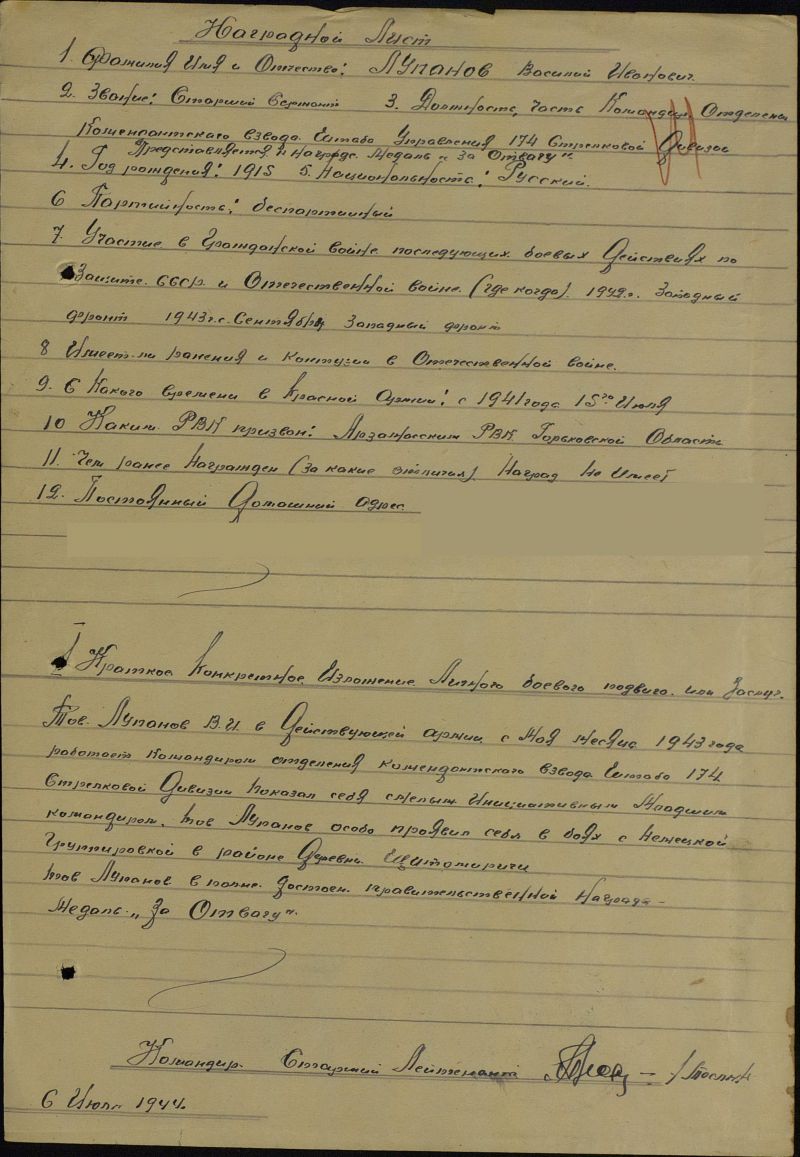 Наградной Лист
1. Фамилия Имя и Отчество: ЛУПАНОВ Василий Иванович
2. Звание: Старший Сержант 3. Должность, часть Командир Отделения
Комендантского взвода Штаба Управления 174 Стрелковой Дивизии
Представляется к награде Медаль „За Отвагу"
4. Год рождения: 1915 5. Национальность: Русский.
6 Партийность: беспартийный
7. Участие в Гражданской войне последующих боевых Действиях по
Защите СССР и Отечественной войне (где когда) 1942г. Западный
фронт 1943г. с Сентября Западный фронт
8 Имеет-ли ранения и контузии в Отечественной войне.
9. С Какого времени в Красной Армии: с 1941 года 15го Июля
10 Каким РВК призван: Арзамасским РВК Горьковской Области
11. Чем ранее Награжден (За какие отличия) Наград Не Имеет
12. Постоянный Домашний адрес
I Краткое Конкретное Изложение Личного боевого подвига или Заслуг.
Тов. Лупанов В.И. в Действующей армии с Мая месяца 1943 года
работает Командиром отделения комендантского взвода Штаба 174
Стрелковой Дивизии показал себя смелым Инициативным Младшим
командиром. Тов Лупанов особо проявил себя в боях с Немецкой
Группировкой в районе Деревни
Тов Лупанов вполне достоен правительственной Награда-
Медаль „За Отвагу".
Командир Старший Лейтенант
6 Июля 1944.